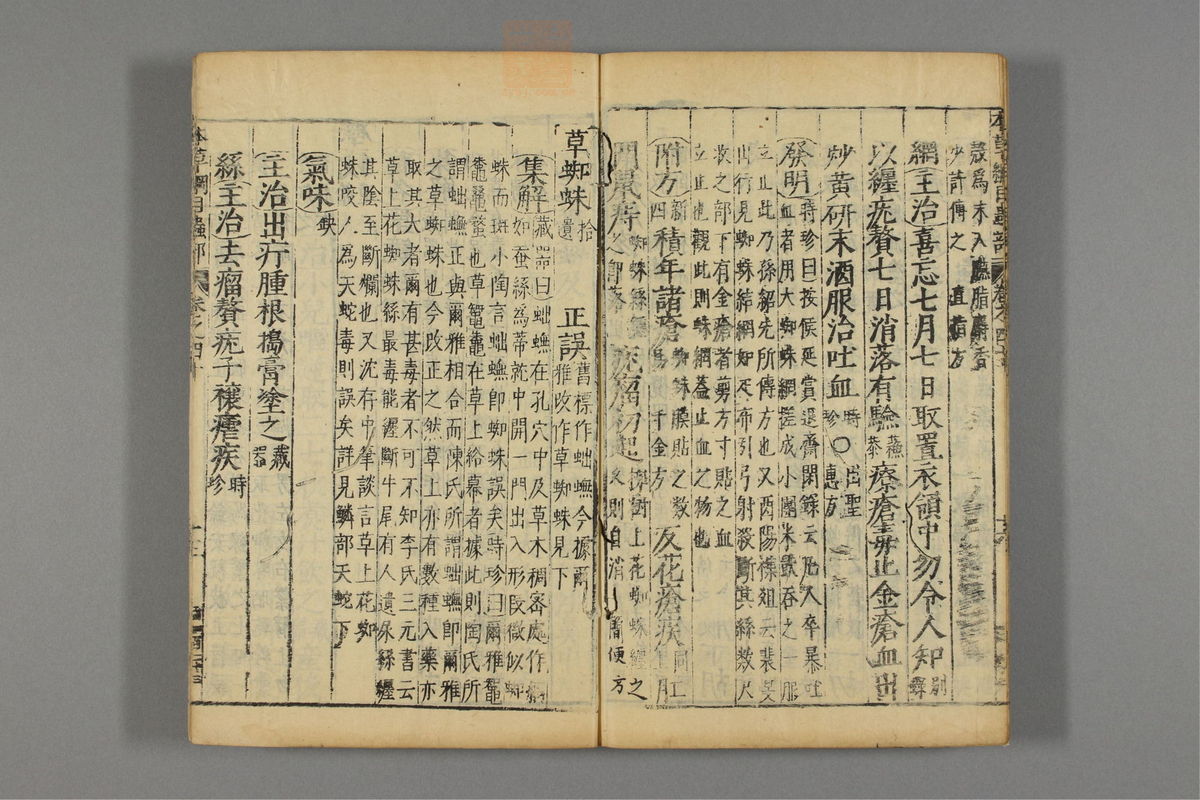 殼爲末入膩脂麝香
少許傅之 直指方
網主治喜忘七月七日取置衣領中勿令人知別錄
以纏疣贅七日消落有驗蘇恭療瘡毒止金瘡血出
炒黃研末酒服治吐血時珍○出聖惠方
發明時珍曰按侯延賞退齋閑錄云凡人卒暴吐
血者用大蜘蛛網搓成小團米飲吞之一服
立止此乃孫紹先所傳方也又酉陽雜俎云裴旻
出行見蜘蛛結網如疋布引弓射殺斷其絲數尺
收之部下有金瘡者剪方寸貼之血
立止也觀此則蛛網蓋止血之物也
附方新四積年諸瘡蜘蛛膜貼之數易千金方反花瘡疾同上
蜘蛛絲纏之即落 疣瘤初起 樹上花蜘蛛纏之久則自消 簡便方
草蜘蛛拾遺 正誤舊標作蚰蟱今據爾雅改作草蜘蛛見下
集解藏器曰蚰蟱在孔穴中及草木稠密處作網
如蚕絲爲幕就中開一門出入形段微似蜘
蛛而斑小陶言蚰蟱即蜘蛛誤矣時珍曰爾雅鼅
鼄鼄蝥也草鼅鼄在草上絡幕者據此則陶氏所
謂蚰蟱正與爾雅相合而陳氏所謂蚰蟱即爾雅
之草蜘蛛也今改正之然草上亦有數種入藥亦
取其大者爾有甚毒者不可不知李氏三元書云
草上花蜘蛛絲最毒能纏斷牛尾有人遺尿絲纏
其陰至斷爛也又沈存中筆談言草上花蜘
蛛咬人爲天蛇毒則誤矣詳見鱗部天蛇下
氣味缺
主治出疔腫根搗膏塗之藏器
絲主治去瘤贅疣子禳瘧疾時珍
本草綱目蟲部 卷之四十